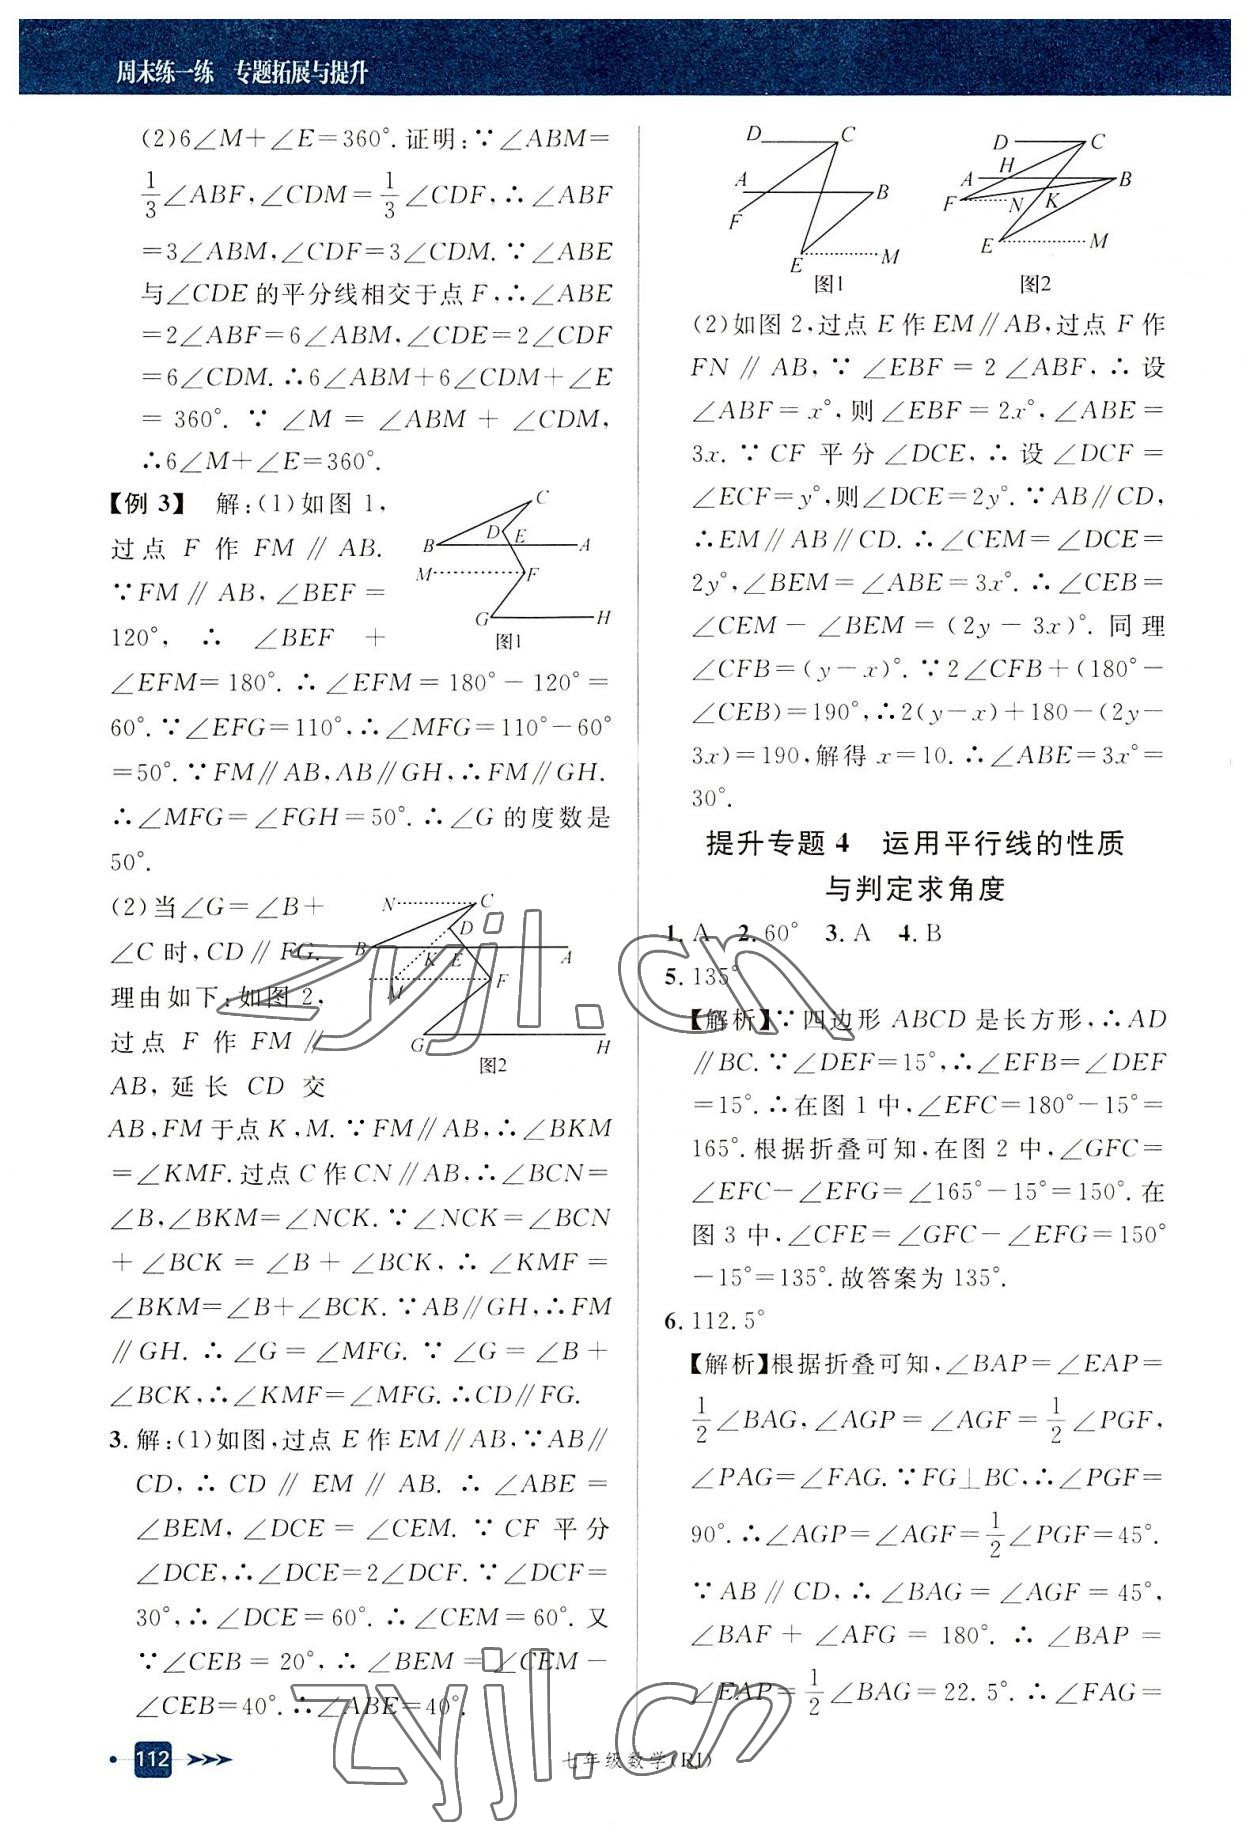 周末练一练 专题拓展与提升
(2)6∠M+∠E=360°.证明:∵∠ABM=
1/3∠ABF,∠CDM=1/3∠CDF,∴∠ABF
=3∠ABM,∠CDF=3∠CDM.∵∠ABE
与∠CDE的平分线相交于点F,∴∠ABE
=2∠ABF=6∠ABM,∠CDE=2∠CDF
=6∠CDM.∴6∠ABM+6∠CDM+∠E
=360°.∵∠M=∠ABM+∠CDM,
∴6∠M+∠E=360°.
【例3】 解:(1)如图1,
过点F作FM∥AB.
∵FM∥AB,∠BEF=
120°,∴∠BEF+
C
D
E
B
A
M
F
G
H
图1
∠EFM=180°.∴∠EFM=180°-120°=
60°.∵∠EFG=110°,∴∠MFG=110°-60°
=50°.∵FM∥AB,AB∥GH,∴FM∥GH.
∴∠MFG=∠FGH=50°.∴∠G的度数是
50°.
(2)当∠G=∠B+
∠C时,CD∥FG.
理由如下:如图2,
过点F作FM∥
AB,延长CD交
N
C
D
B
K
E
A
M
F
G
H
图2
AB,FM于点K,M.∵FM∥AB,∴∠BKM
=∠KMF.过点C作CN∥AB,∴∠BCN=
∠B,∠BKM=∠NCK.∵∠NCK=∠BCN
+∠BCK=∠B+∠BCK,∴∠KMF=
∠BKM=∠B+∠BCK.∵AB∥GH,∴FM
∥GH.∴∠G=∠MFG.∵∠G=∠B+
∠BCK,∴∠KMF=∠MFG.∴CD∥FG.
3.解:(1)如图,过点E作EM∥AB,∵AB∥
CD,∴CD∥EM∥AB.∴∠ABE=
∠BEM,∠DCE=∠CEM.∵CF平分
∠DCE,∴∠DCE=2∠DCF.∵∠DCF=
30°,∴∠DCE=60°.∴∠CEM=60°.又
∵∠CEB=20°,∴∠BEM=∠CEM-
∠CEB=40°.∴∠ABE=40°.
D
C
A
B
F
E
M
图1
D
C
H
A
B
F
N
K
E
M
图2
(2)如图2,过点E作EM∥AB,过点F作
FN∥AB,∵∠EBF=2∠ABF,∴设
∠ABF=x°,则∠EBF=2x°,∠ABE=
3x.∵CF平分∠DCE,∴设∠DCF=
∠ECF=y°,则∠DCE=2y°.∵AB∥CD,
∴EM∥AB∥CD.∴∠CEM=∠DCE=
2y°,∠BEM=∠ABE=3x°.∴∠CEB=
∠CEM-∠BEM=(2y-3x)°.同理
∠CFB=(y-x)°.∵2∠CFB+(180°-
∠CEB)=190°,∴2(y-x)+180-(2y-
3x)=190,解得x=10.∴∠ABE=3x°=
30°.
提升专题4 运用平行线的性质
与判定求角度
1.A 2.60° 3.A 4.B
5.135°
【解析】∵四边形ABCD是长方形,∴AD
∥BC.∵∠DEF=15°,∴∠EFB=∠DEF
=15°.∴在图1中,∠EFC=180°-15°=
165°.根据折叠可知,在图2中,∠GFC=
∠EFC-∠EFG=∠165°-15°=150°.在
图3中,∠CFE=∠GFC-∠EFG=150°
-15°=135°.故答案为135°.
6.112.5°
【解析】根据折叠可知,∠BAP=∠EAP=
1/2∠BAG,∠AGP=∠AGF=1/2∠PGF,
∠PAG=∠FAG.∵FG⊥BC,∴∠PGF=
90°.∴∠AGP=∠AGF=1/2∠PGF=45°.
∵AB∥CD,∴∠BAG=∠AGF=45°,
∠BAF+∠AFG=180°.∴∠BAP=
∠EAP=1/2∠BAG=22.5°.∴∠FAG=
112
七年级数学(RJ)
zyjl.cn
zyjl.cn